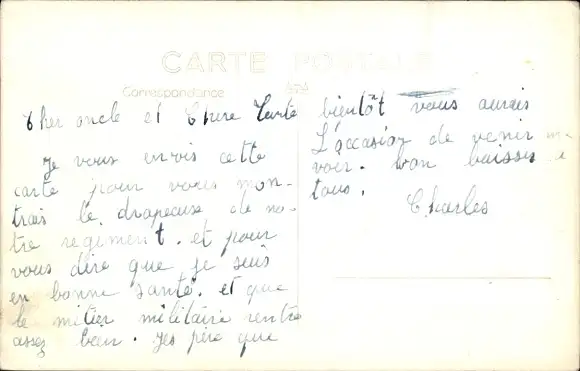 CARTE POSTALE
Correspondance
Cher oncle et Chere Tante
Je vous envois cette
carte pour vous mon-
trais le drapeaux de no-
tre regiment. et pour
vous dire que je suis
en bonne santé. et que
le mitier militaire rentre
assez bein. Jes père que
bientôt vous aurais
L'occasion de venir me
voir. bon baisses a
tous.
Charles